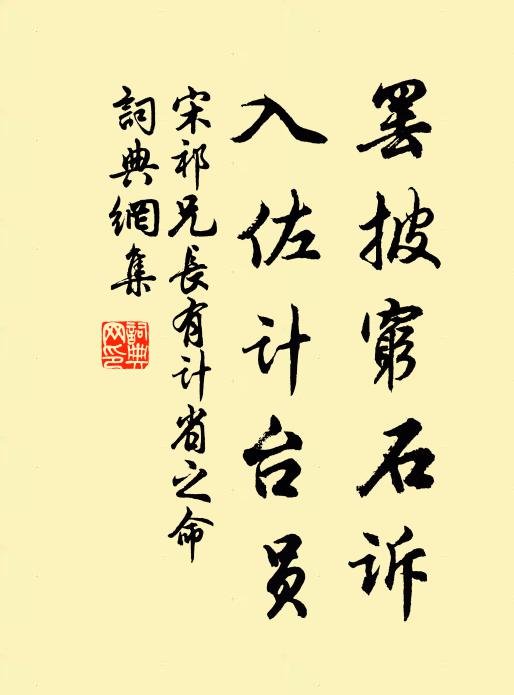 罢披穷石诉
入佐计台员
宋祁兄長有计省之命
詞典網集
詞典
网印